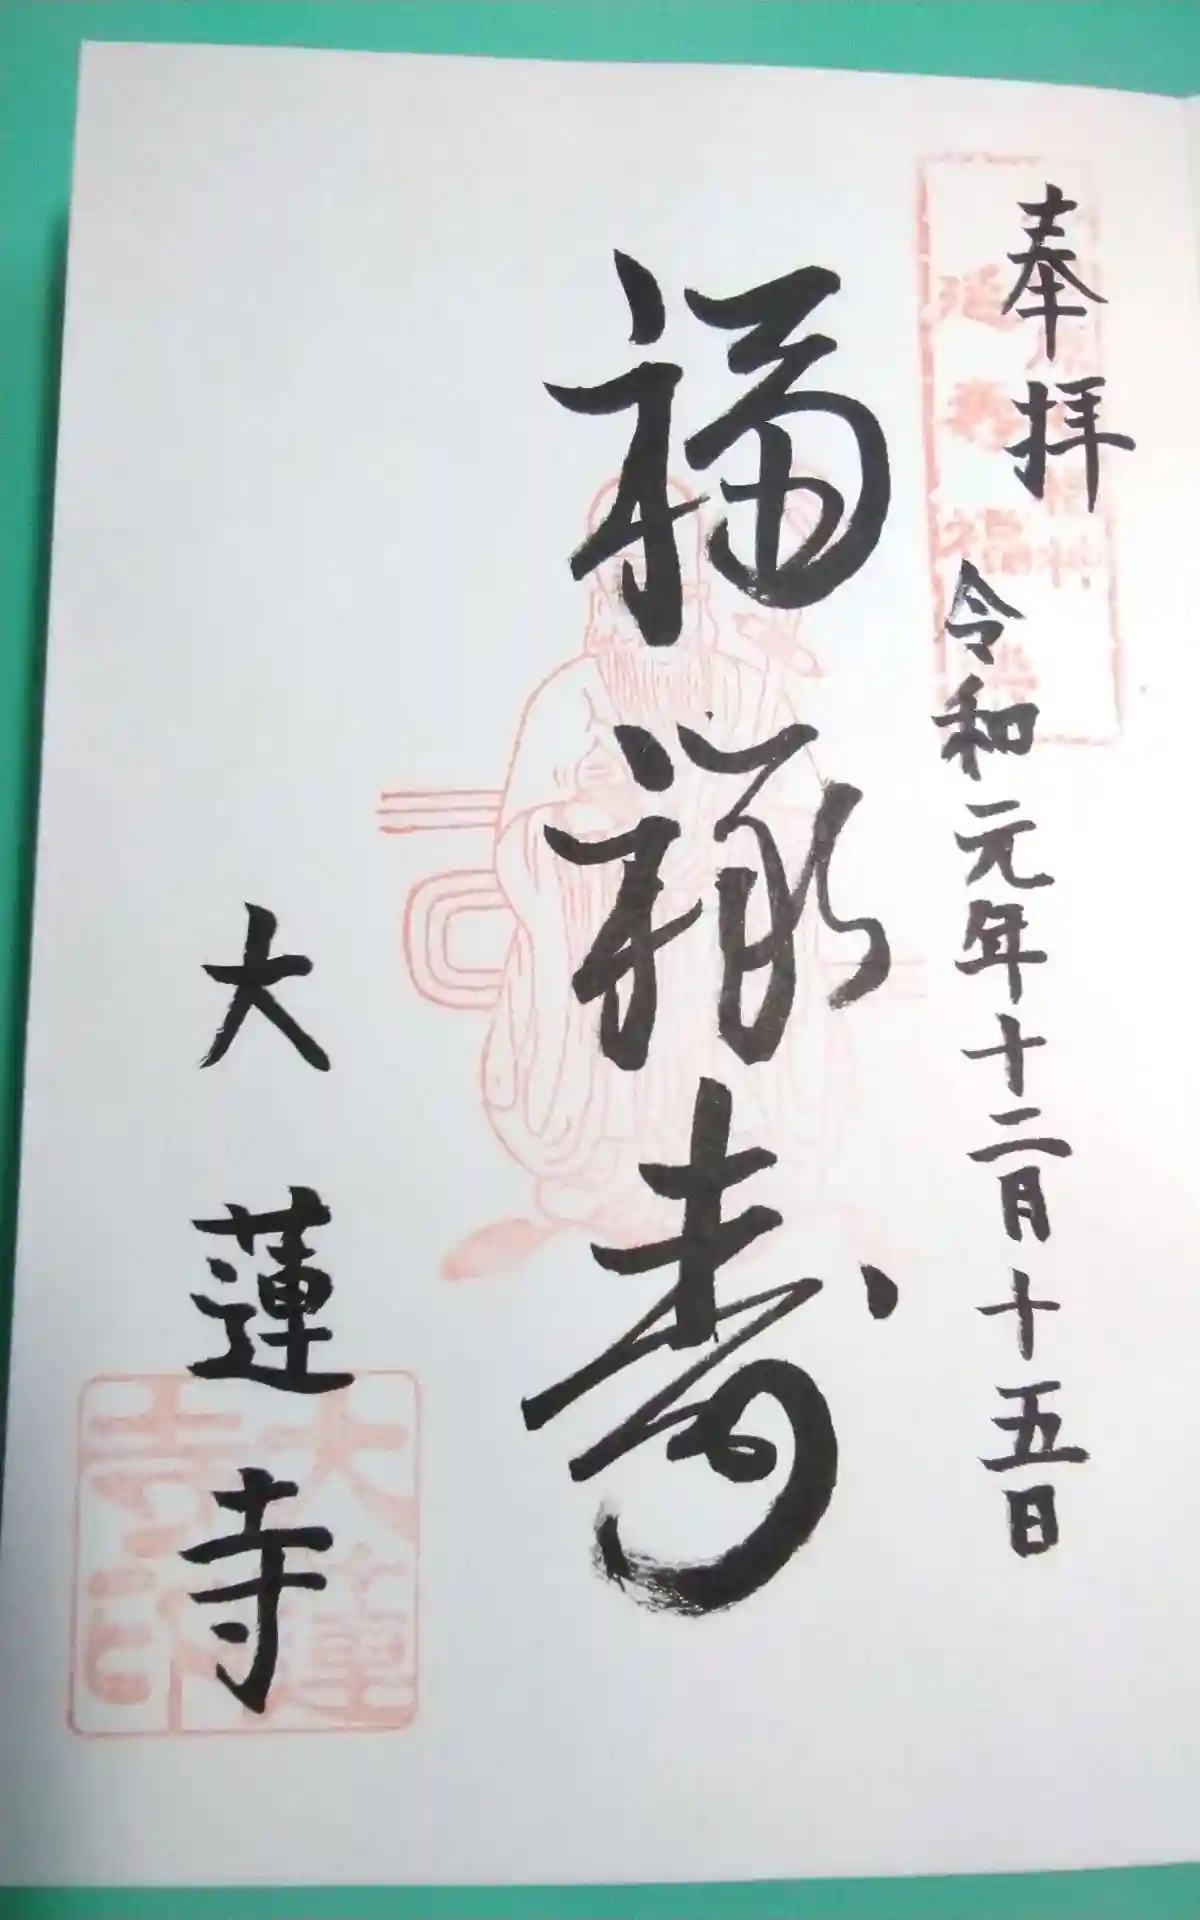 奉拝
令和元年十二月十五日
福禄寿
大蓮寺
大蓮
寺印